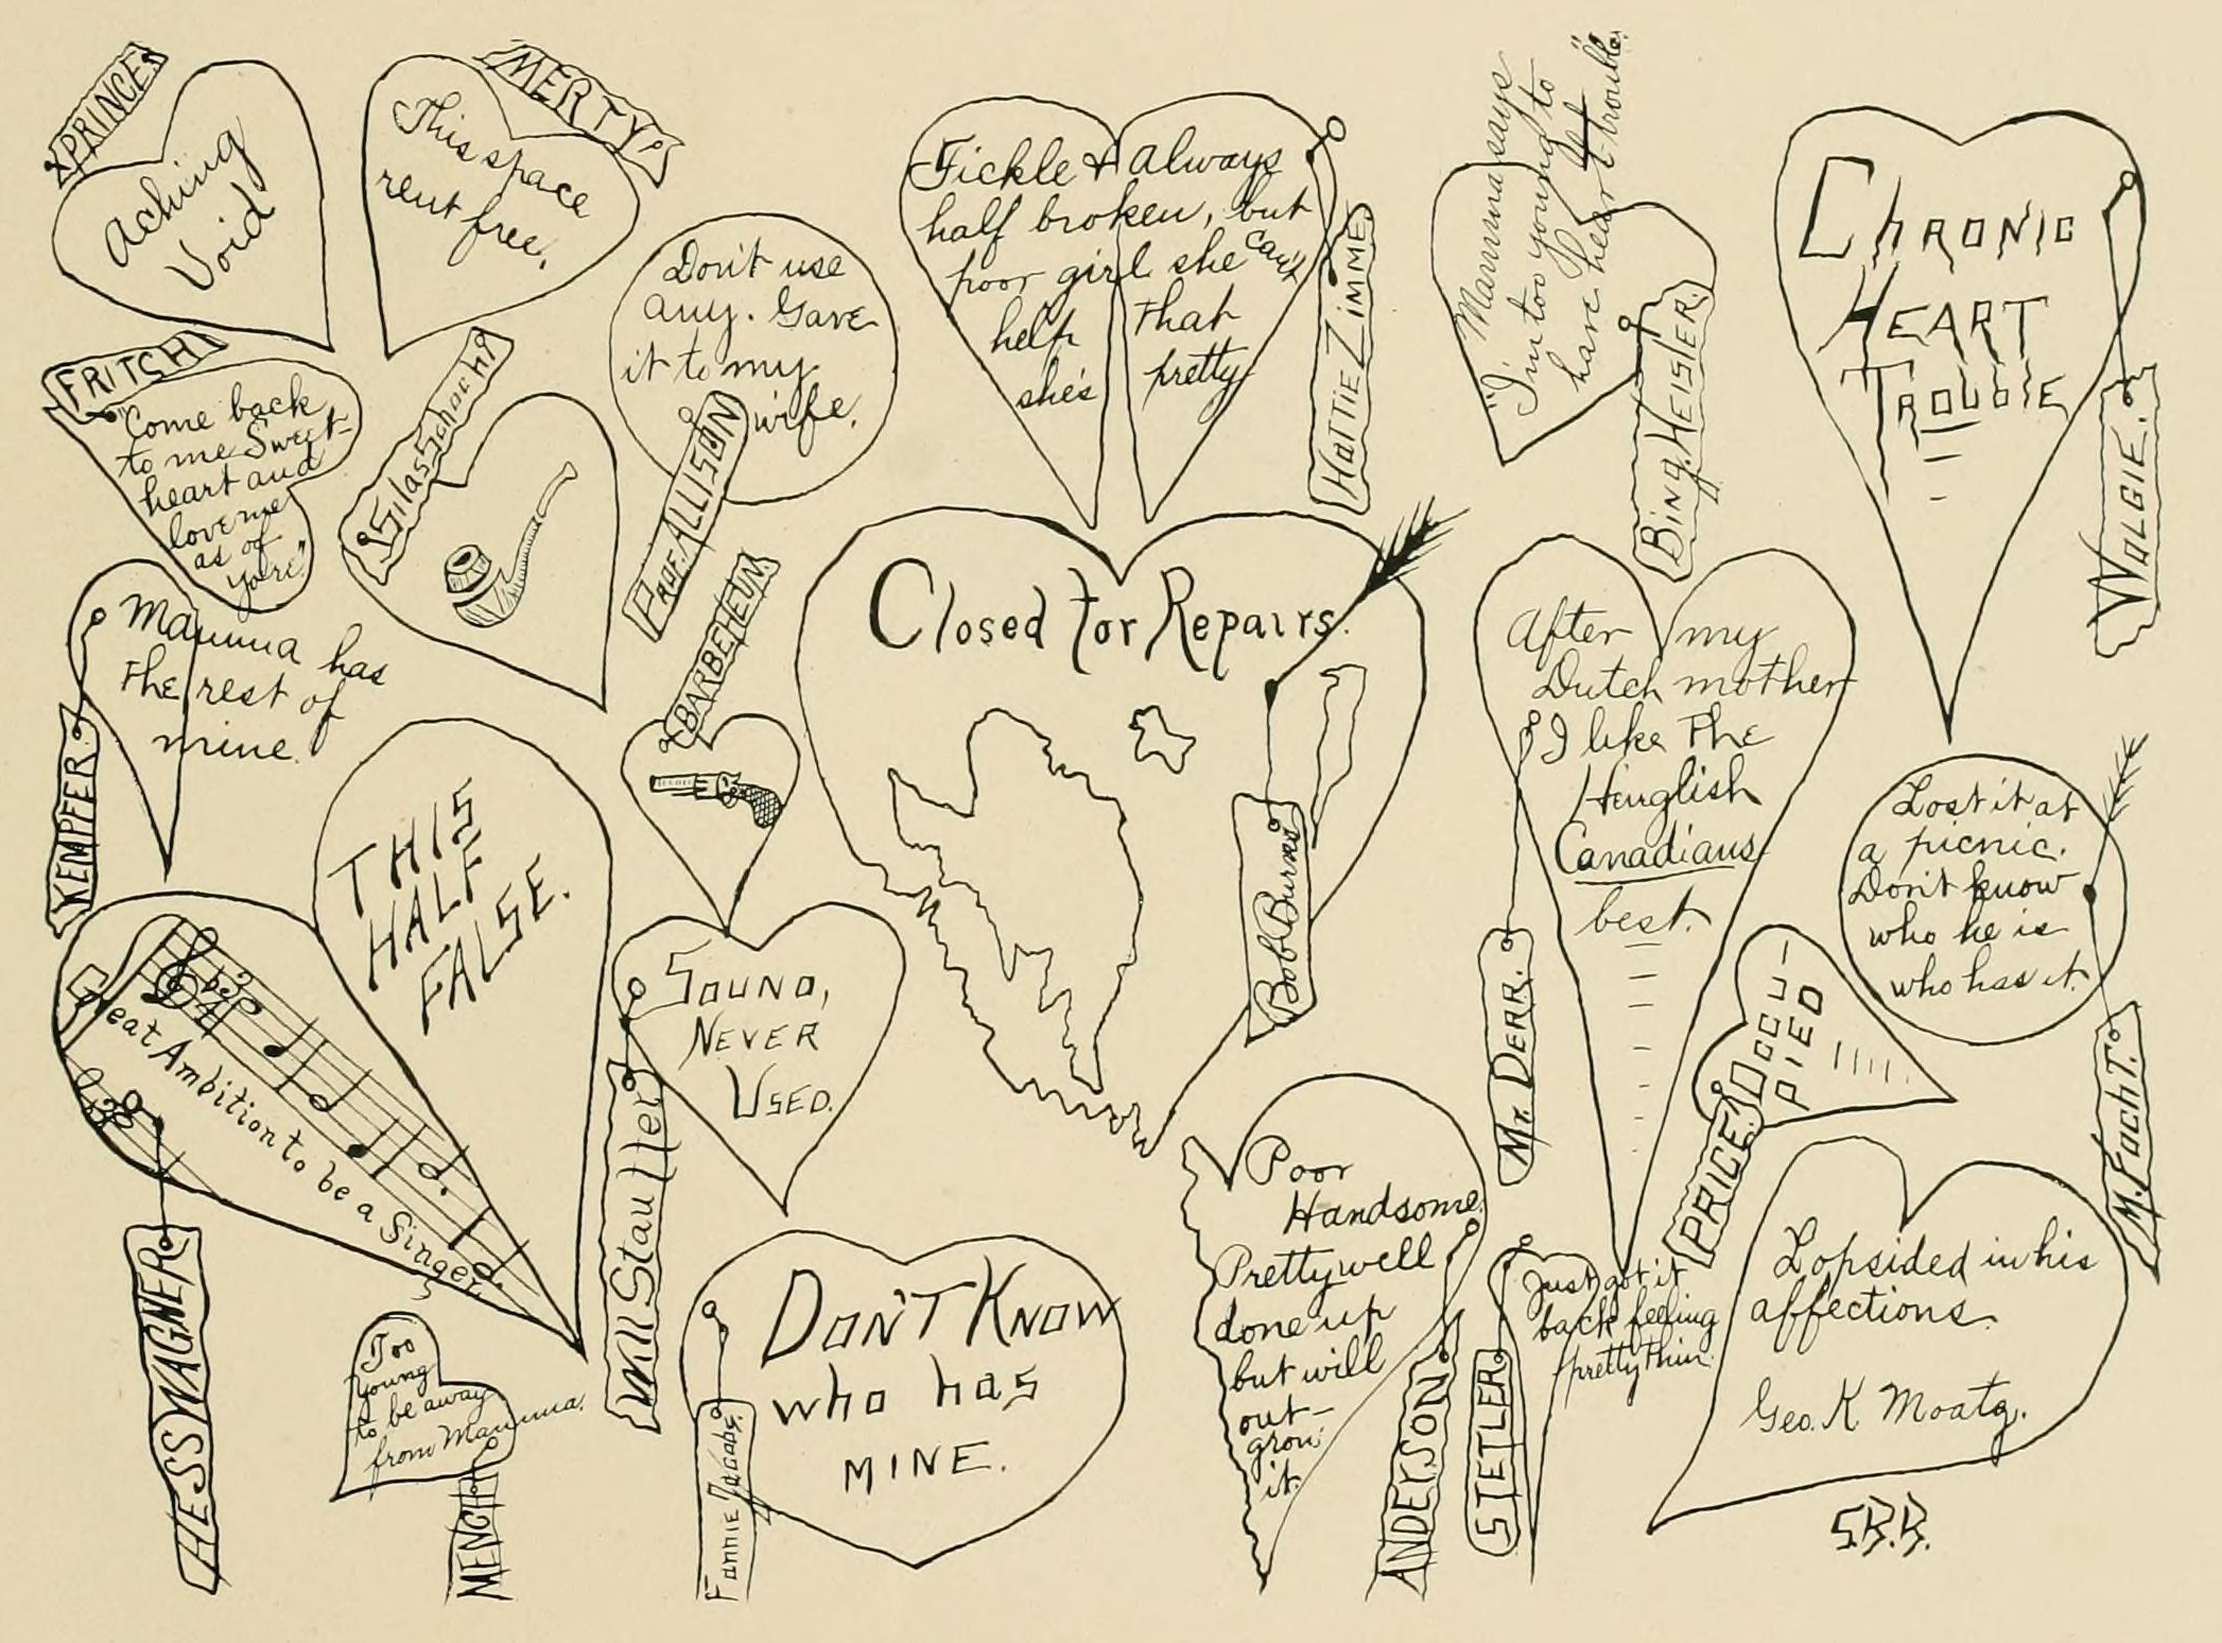 XPRINCE.
Aching
Void
MERTY.
This space
rent free.
Don't use
any. Gave
it to my
wife.
PROF. ALLISON
Fickle & always
half broken, but
poor girl she can't
help that
she's pretty
HaTTIE ZiMME.
"Mamma says
I'm too young to
have heart trouble."
Bing. HEISTER.
CHRONIC
HEART
TROUBLE
WOLGIE.
FRITCH
"Come back
to me Sweet-
heart and
love me
as of
yore."
Silas Schoch
Mamma has
the rest of
mine.
KEMPFER.
BARBEHEUN.
Closed for Repairs.
Bob Burns
After my
Dutch mother
I like the
Henglish
Canadians
best.
Mr. DERR.
Lost it at
a picnic.
Don't know
who he is
who has it.
M. FachT.
THIS
HALF
FALSE.
Great Ambition to be a Singer
HESS WAGNER
SOUND,
NEVER
USED.
Will Stauffer
OCCU-
PIED
PRICE.
Poor
Handsome.
Pretty well
done up
but will
out-
grow
it.
ANDERSON
Just got it
back feeling
pretty thin.
STETLER
Lopsided in his
affections.
Geo. K Moatz.
Too
Young
to be away
from Mamma.
MENCH
DON'T KNOW
who has
MINE.
Fannie Jacobs.
S.B.B.